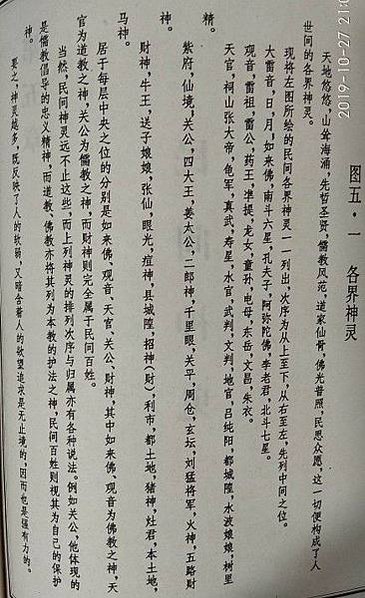 图五·一 各界神灵
天地悠悠，山耸海涌，先哲圣贤，儒教风范，道家仙骨，佛光普照，民思众愿，这一切便构成了人
世间的各界神灵。
现将左图所绘的民间各界神灵一一列出，次序为从上至下，从右至左，先列中间之位。
大雷音，日，月，如来佛，南斗六星，孔夫子，阿弥陀佛，李老君，北斗七星。
观音，雷祖，雷公，药王，准提，龙女，童孙，电母，东岳，文昌，朱衣。
天官，祠山张大帝，龟军，真武，寿星，水官，武判，文判，地官，吕纯阳，都城隍，水波娘娘，树里
精。
紫府，仙境，关公，四大王，姜太公，二郎神，千里眼，关平，周仓，玄坛，刘猛将军，火神，五路财
神。
财神，牛王，送子娘娘，张仙，眼光，痘神，县城隍，招神（财），利市，都土地，猪神，灶君，本土地，
马神。
居于每层中央之位的分别是如来佛、观音、天官、关公、财神，其中如来佛、观音为佛教之神，天
官为道教之神，关公为儒教之神，而财神则完全属于民间百姓。
当然，民间神灵远不止这些，而上列神灵的排列次序与归属亦有各种说法。例如关公，他体现的
是儒教倡导的忠义精神，而道教、佛教亦将其列为本教的护法之神，民间百姓则视其为自己的保护
神。
要之，神灵越多，既反映了人的软弱，又暗含着人的欲望追求是无止境的，因而也是强有力的。
2019-10-27 21:0